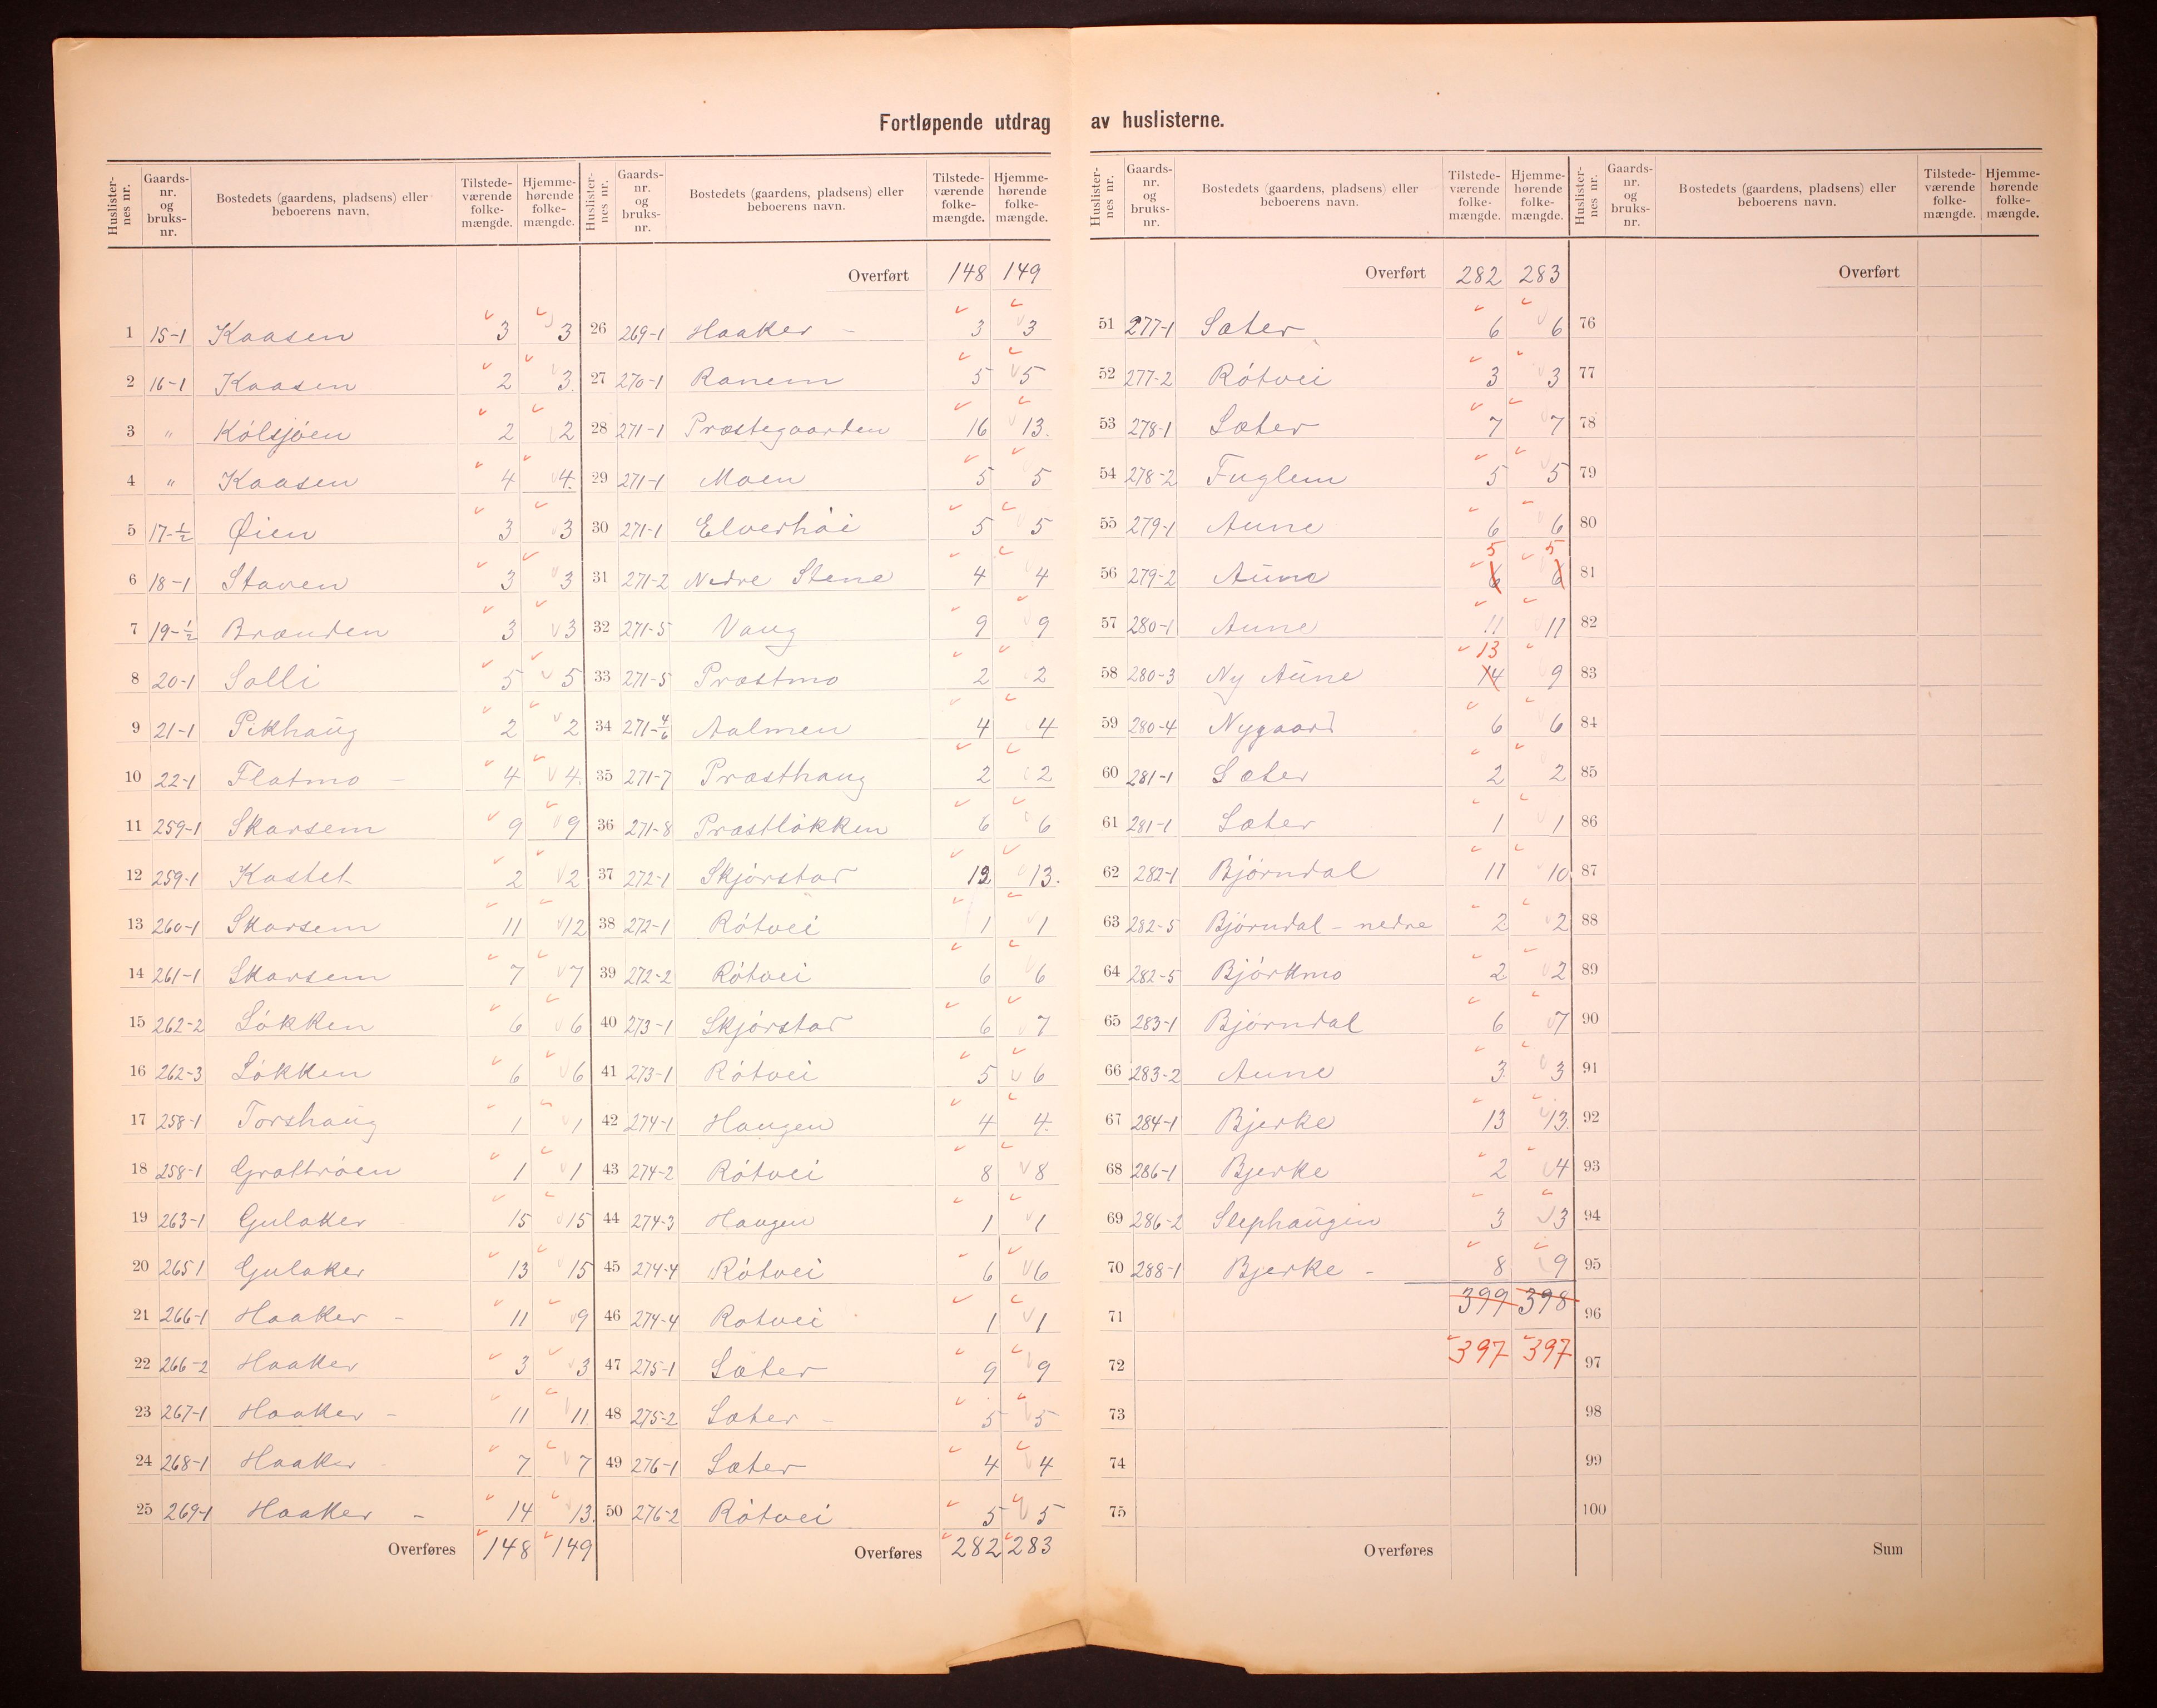 Fortløpende utdrag av huslisterne.
Huslister-nes nr. Gaards-nr. og bruks-nr. Bostedets (gaardens, pladsens) eller beboerens navn. Tilstede-værende folke-mængde. Hjemme-hørende folke-mængde.
1 15-1 Kaasen 3 3
2 16-1 Kaasen 2 3
3 " Kólsjöen 2 2
4 " Kaasen 4 4
5 17-1/2 Øien 3 3
6 18-1 Staven 3 3
7 19-1/2 Brænden 3 3
8 20-1 Solli 5 5
9 21-1 Pikhaug 2 2
10 22-1 Flatmo - 4 4
11 259-1 Skarsem 9 9
12 259-1 Kastet 2 2
13 260-1 Skarsem 11 12
14 261-1 Skarsem 7 7
15 262-2 Lókken 6 6
16 262-3 Lókken 6 6
17 258-1 Torshaug 1 1
18 258-1 Grøttróen 1 1
19 263-1 Gulaker 15 15
20 265 1 Gulaker 13 15
21 266-1 Haaker - 11 9
22 266-2 Haaker 3 3
23 267-1 Haaker - 11 11
24 268-1 Haaker 7 7
25 269-1 Haaker - 14 13
Overføres 148 149
Huslister-nes nr. Gaards-nr. og bruks-nr. Bostedets (gaardens, pladsens) eller beboerens navn. Tilstede-værende folke-mængde. Hjemme-hørende folke-mængde.
Overført 148 149
26 269-1 Haaker - 3 3
27 270-1 Ranem 5 5
28 271-1 Præstegaarden 16 13.
29 271-1 Moen 5 5
30 271-1 Elverhói 5 5
31 271-2 Nedre Stene 4 4
32 271-5 Vang 9 9
33 271-5 Præstmo 2 2
34 271-4/6 Aalmen 4 4
35 271-7 Præsthaug 2 2
36 271-8 Præstlókken 6 6
37 272-1 Skjórstad 12 13.
38 272-1 Rótvei 1 1
39 272-2 Rótvei 6 6
40 273-1 Skjórstad 6 7
41 273-1 Rótvei 5 6
42 274-1 Haugen 4 4.
43 274-2 Rótvei 8 8
44 274-3 Haugen 1 1
45 274-4 Rótvei 6 6
46 274-4 Rotvei 1 1
47 275-1 Sæter 9 9
48 275-2 Sæter - 5 5
49 276-1 Sæter 4 4
50 276-2 Rótvei 5 5
Overføres 282 283
Huslister-nes nr. Gaards-nr. og bruks-nr. Bostedets (gaardens, pladsens) eller beboerens navn. Tilstede-værende folke-mængde. Hjemme-hørende folke-mængde.
Overført 282 283
51 277-1 Sæter 6 6
52 277-2 Rótvei 3 3
53 278-1 Sæter 7 7
54 278-2 Fuglem 5 5
55 279-1 Aune 6 6
5 5
56 279-2 Aune 6 6
57 280-1 Aune 11 11
13
58 280-3 Ny Aune 14 9
59 280-4 Nygaard 6 6
60 281-1 Sæter 2 2
61 281-1 Sæter 1 1
62 282-1 Bjórndal 11 10
63 282-5 Bjórndal - nedre 2 2
64 282-5 Bjórkmo 2 2
65 283-1 Bjórndal 6 7
66 283-2 Aune 3 3
67 284-1 Bjerke 13 13
68 286-1 Bjerke 2 4
69 286-2 Slephaugen 3 3
70 288-1 Bjerke - 8 9
71 399 398
72 397 397
73
74
75
Overføres
Huslister-nes nr. Gaards-nr. og bruks-nr. Bostedets (gaardens, pladsens) eller beboerens navn. Tilstede-værende folke-mængde. Hjemme-hørende folke-mængde.
Overført
76
77
78
79
80
81
82
83
84
85
86
87
88
89
90
91
92
93
94
95
96
97
98
99
100
Sum